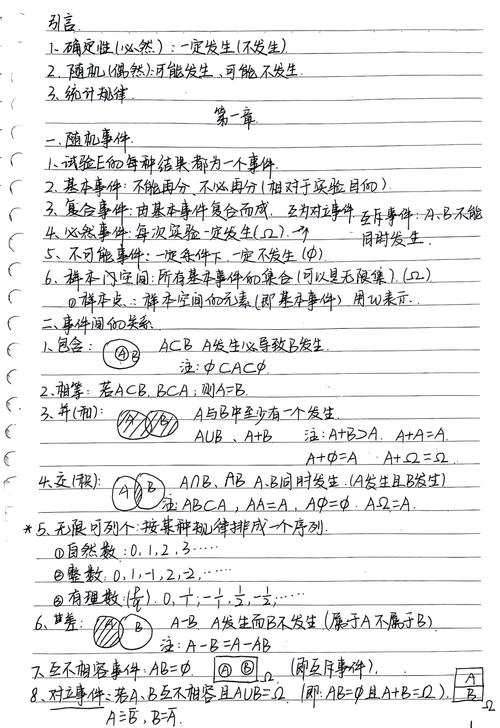 引言.
1.确定性(必然):一定发生(不发生)
2.随机(偶然):可能发生、可能不发生.
3.统计规律.
第一章
一.随机事件.
1.试验E的每种结果都为一个事件.
2.基本事件:不能再分,不必再分(相对于实验目的).
3.复合事件:由基本事件复合而成. 互为对立事件 互斥事件:A、B不能
4.必然事件:每次实验一定发生(Ω).→ 同时发生.
5.不可能事件:一定条件下,一定不发生(φ)
6.样本空间:所有基本事件的集合(可以是无限集).(Ω)
①样本点:样本空间的元素(即基本事件) 用W表示.
二.事件间的关系
1.包含: A B A⊂B A发生必导致B发生.
注:φ⊂A⊂Ω.
2.相等:若A⊂B,B⊂A;则A=B.
3.并(和): A B A与B中至少有一个发生.
A∪B、A+B 注:A+B>A. A+A=A.
A+φ=A A+Ω=Ω.
4.交(积): A B A∩B、AB A、B同时发生.(A发生且B发生)
注:AB⊂A,AA=A,Aφ=φ.AΩ=A.
*5.无限可列个:按某种规律排成一个序列.
①自然数:0,1,2,3……
②整数:0,1,-1,2,-2,……
③有理数(p/q).0,1/1,-1/1,1/2,-1/2,……
6.差: A B A-B A发生而B不发生(属于A不属于B)
注:A-B=A-AB
7.互不相容事件:AB=φ. A B Ω (即互斥事件).
8.对立事件:若A、B互不相容且A∪B=Ω (即:AB=φ且A+B=Ω). A B Ω
A=B̄,B=Ā.